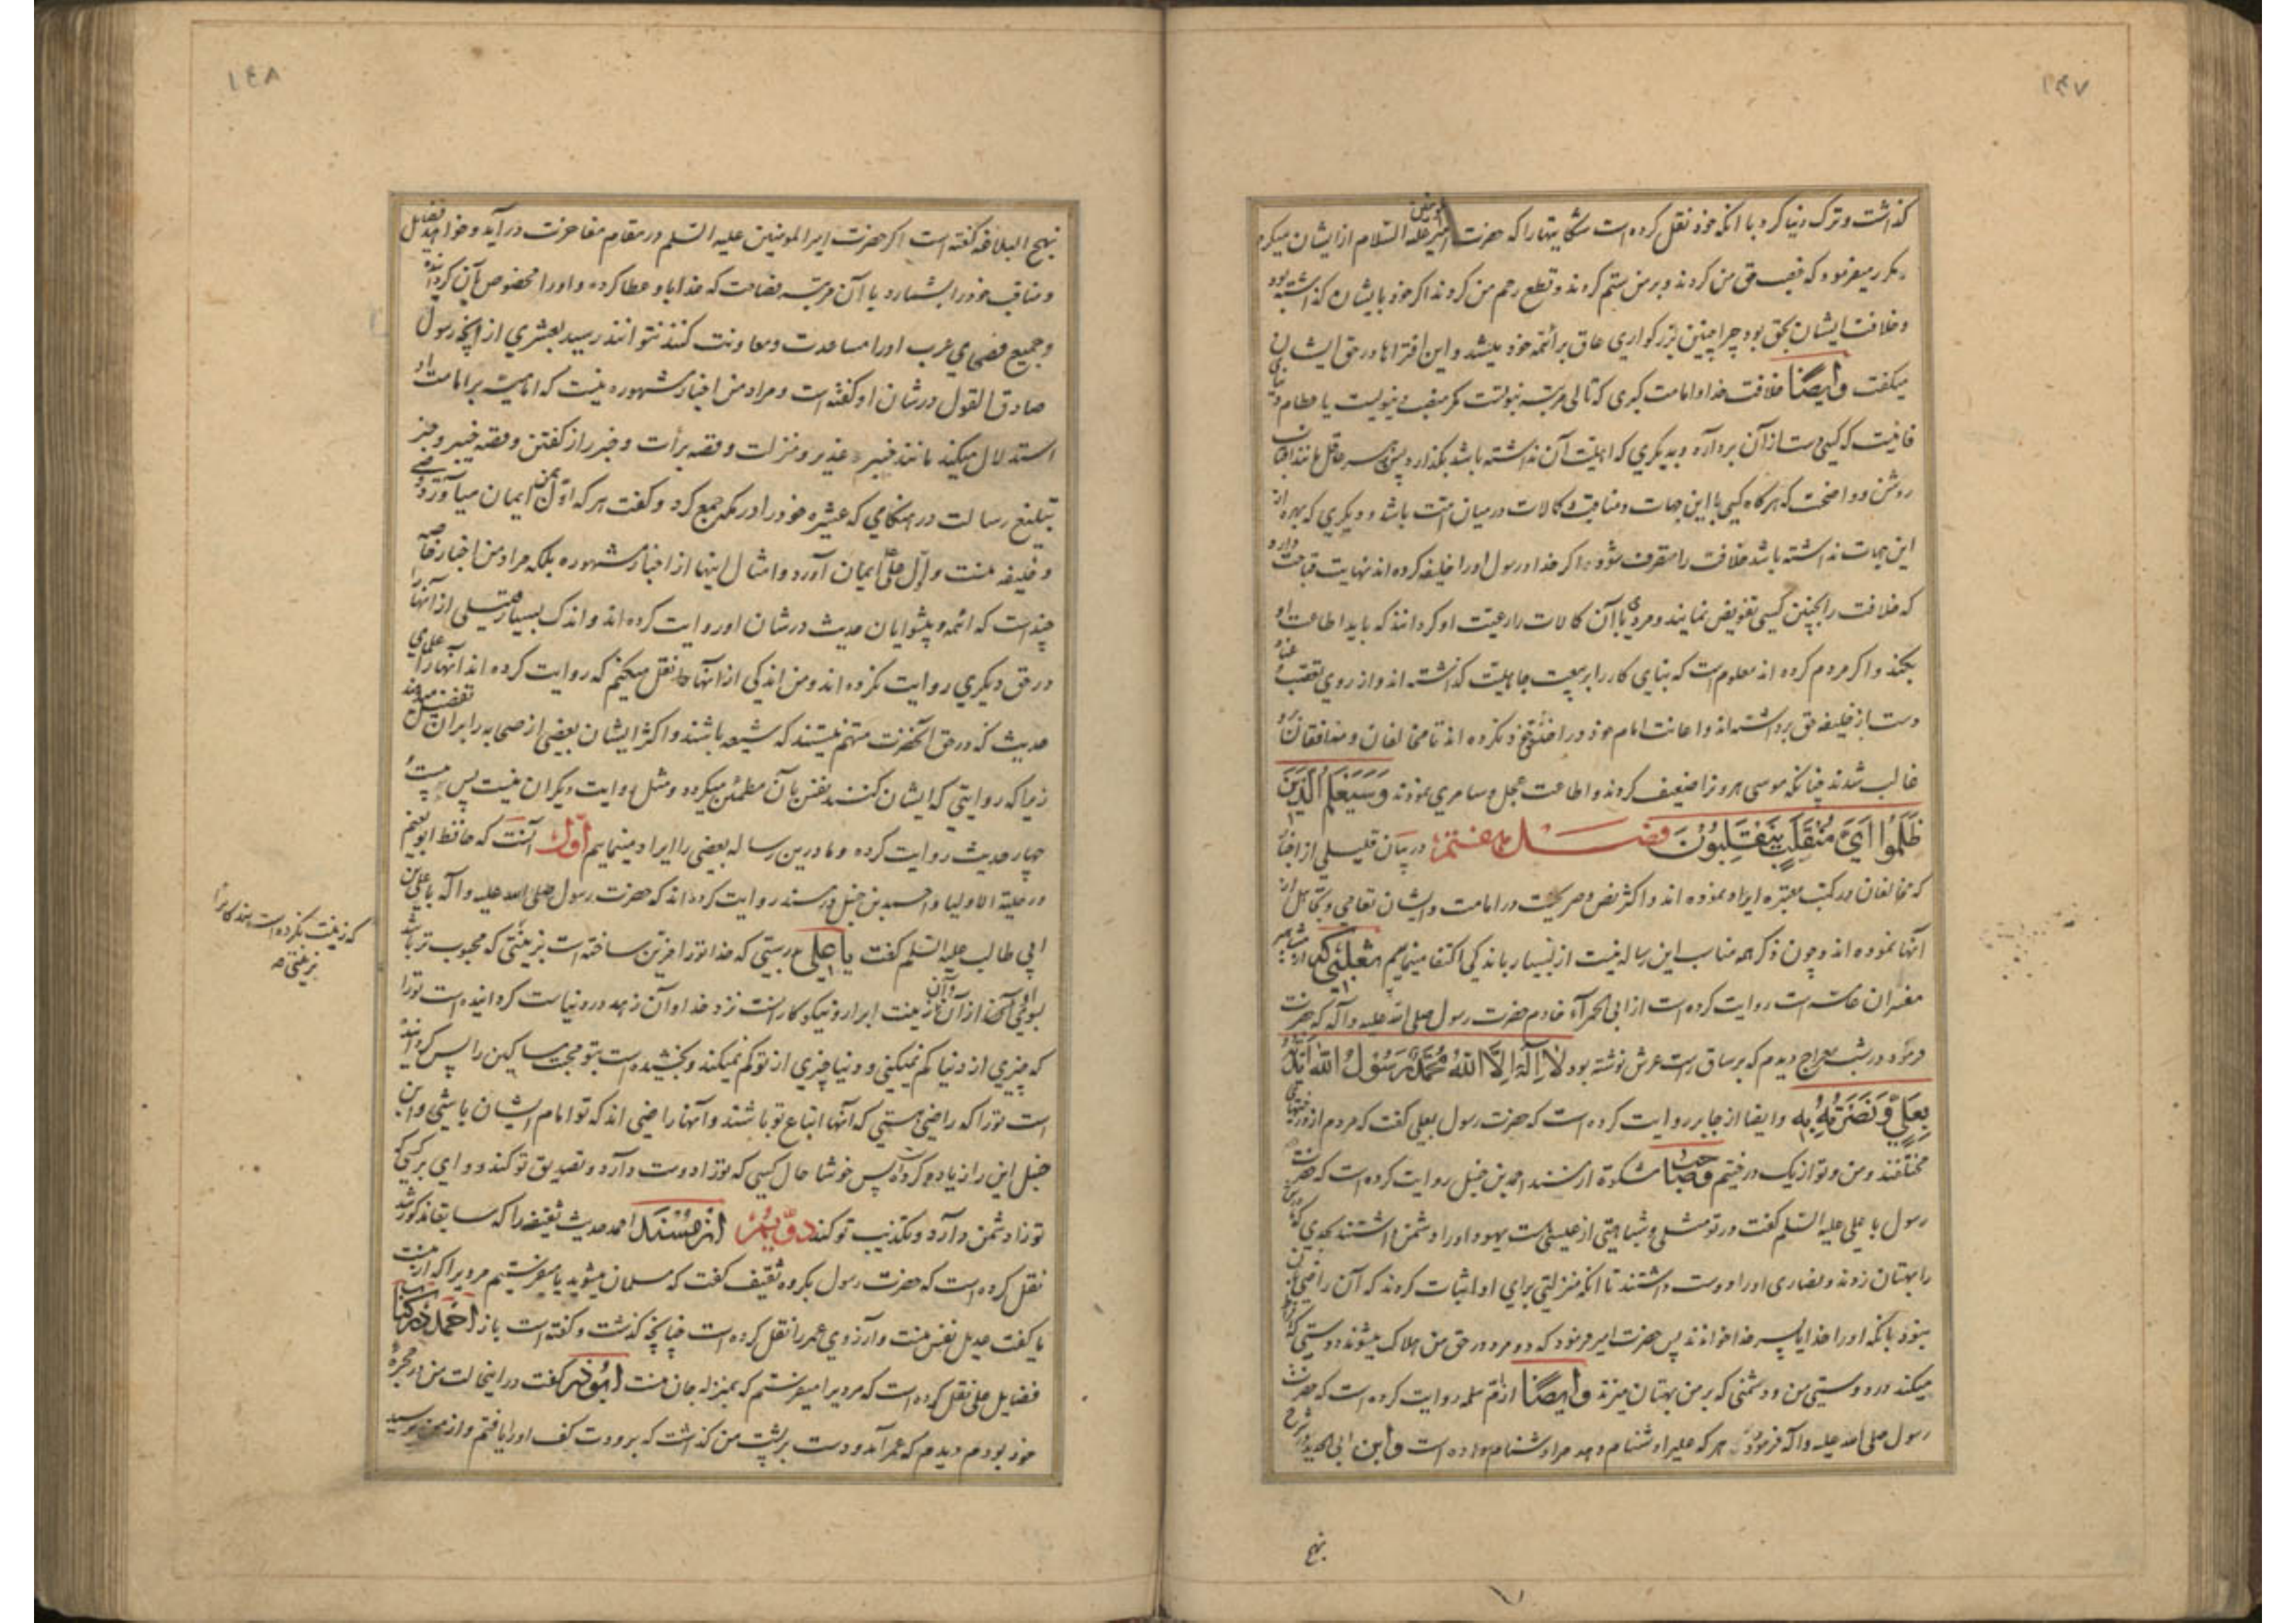 ۱۴۷
گذاشت و ترک دنیا کرد با آنکه خود نقل کرده است شکایتها را که حضرت امیر علیه السلام از ایشان میکرد
مکرر میفرمود که غصب حق من کردند و بر من ستم کردند و قطع رحم من کردند اگر خود بایشان گذاشته بود
و خلافت ایشان بحق بود چرا چنین بزرگواری عاق بر ائمه خود میشد و این افتراها در حق ایشان
میگفت وایضًا خلافت خدا و امامت کبری که تالی مرتبه نبوتست مگر منصب دنیویست یا حطام دنیای
فانیست که کسی دست از آن بردارد و بدیگری که اهلیت آن نداشته باشد بگذارد پس بر هر عاقل مانند آفتاب
روشن و واضحست که هرگاه کسی با این جهات و مناقب و کمالات در میان امت باشد و دیگری که بهره از
این جهات نداشته باشد خلافت را متصرف شود اگر خدا و رسول او را خلیفه کرده اند نهایت قباحت دارد
که خلافت را بچنین کسی تفویض نمایند و مردی با آن کمالات را رعیت او گردانند که باید اطاعت او
بکند و اگر مردم کرده اند معلوم است که بنای کار را بر بیعت جاهلیت گذاشته اند و از روی تعصب و عناد
دست از خلیفه حق برداشته اند و اعانت امام خود در اخذ حق خود نکرده اند تا مخالفان و منافقان برو
غالب شدند چنانکه موسی هرون را ضعیف کردند و اطاعت عجل و سامری نمودند وَسَيَعْلَمُ الَّذِينَ
ظَلَمُوا اَيَّ مُنْقَلَبٍ يَنْقَلِبُونَ فصـل هفتم در بیان قلیلی از اخبار
که مخالفان در کتب معتبره ایراد نموده اند و اکثر نص و صریحست در امامت و ایشان تعامی و تجاهل از
آنها نموده اند و چون ذکر همه مناسب این رساله نیست از بسیار باندکی اکتفا مینمایم ثعلبی که از مشاهیر
مفسران عامه است روایت کرده است از ابی الحمراء خادم حضرت رسول صلی الله علیه و آله که حضرت
فرمود در شب معراج دیدم که بر ساق راست عرش نوشته بود لَا اِلٰهَ اِلَّا اللهُ مُحَمَّدٌ رَسُولُ اللهِ اَيَّدْتُهُ
بِعَلِيٍّ وَنَصَرْتُهُ بِهِ وایضا از جابر روایت کرده است که حضرت رسول بعلی گفت که مردم از درختهای
مختلفند و من و تو از یک درختیم وصاحب مشکوة از مسند احمد بن حنبل روایت کرده است که حضرت
رسول با علی علیه السلم گفت در تو مثلی و شباهتی از عیسی است یهود او را دشمن داشتند بحدی که مادرش
را بهتان زدند و نصاری او را دوست داشتند تا آنکه منزلتی برای او اثبات کردند که آن راضی بآن
نبود بآنکه او را خدا یا پسر خدا خواندند پس حضرت امیر فرمود که دو مرد در حق من هلاک میشوند دوستی که
میکند در دوستی من و دشمنی که بر من بهتان میزند وایضًا از ام سلمه روایت کرده است که حضرت
رسول صلی الله علیه و آله فرمود هر که علی را دشنام دهد مرا دشنام داده است وابن ابی الحدید در شرح
نهج
۱۴۸
نهج البلاغه گفته است اگر حضرت امیرالمومنین علیه السلم در مقام مفاخرت درآید و خواهد فضایل
و مناقب خود را بشمارد با آن مرتبه فصاحت که خدا باو عطا کرده و او را مخصوص بآن گردانیده
و جمیع فصحای عرب او را مساعدت و معاونت کنند نتوانند رسید بعشری از آنچه رسول
صادق القول در شان او گفته است و مراد من اخبار مشهوره نیست که امامیه بر امامت او
استدلال میکنند مانند خبر غدیر و منزلت و قصه برأت و خبر راز گفتن و قصه خیبر و خبر
تبلیغ رسالت در هنگامی که عشیره خود را در مکه جمع کرد و گفت هر که اول بمن ایمان میآورد وصی
و خلیفه منست و اول علی ایمان آورد و امثال اینها از اخبار مشهوره بلکه مراد من اخبار خاصه
چند است که ائمه و پیشوایان حدیث در شان او روایت کرده اند و اندک بسیار قلیلی از آنها را
در حق دیگری روایت نکرده اند و من اندکی از آنها نقل میکنم که روایت کرده اند آنها را علمای
حدیث که در حق آنحضرت متهم نیستند که شیعه باشند و اکثر ایشان بعضی از صحابه را بر آن تفضیل میدهند
زیرا که روایتی که ایشان کنند نفس بآن مطمئن میگردد و مثل روایت دیگران نیست پس بیست و
چهار حدیث روایت کرده و ما درین رساله بعضی را ایراد مینماییم اول آنست که حافظ ابونعیم
در حلیة الاولیا و احمد بن حنبل در مسند روایت کرده اند که حضرت رسول صلی الله علیه و آله با علی بن
ابی طالب علیه السلم گفت یا علی بدرستی که خدا تو را مزین ساخته است بزینتی که محبوب تر باشد
بسوی او از آن و آن زینت ابرار و نیکوکارانست نزد خدا و آن زهد در دنیاست گردانیده است تو را
که چیزی از دنیا کم نمیکنی و دنیا چیزی از تو کم نمیکند و بخشیده است بتو محبت مساکین را پس گردانیده
است تو را که راضی هستی که آنها اتباع تو باشند و آنها راضی اند که تو امام ایشان باشی و ابن
حنبل این را زیاد کرده است پس خوشا حال کسی که تو را دوست دارد و تصدیق تو کند و وای بر کسی که
تو را دشمن دارد و تکذیب تو کند دویم از مسند احمد حدیث ثقیف را که سابقا مذکور شد
نقل کرده است که حضرت رسول بگروه ثقیف گفت که مسلمان میشوید یا میفرستم مردیرا که از منست
یا گفت عدیل نفس منست و آرزوی عمر را نقل کرده است چنانچه گذشت و گفته است باز احمد در کتاب
فضایل علی نقل کرده است که مردیرا میفرستم که بمنزله جان منست ابوذر گفت در اینحالت من در حجره
خود بودم دیدم که عمر آمد و دست بر پشت من گذاشت که برودت کف او را یافتم و از من پرسید
که زینت نکرده است بندگانرا
بزینتی